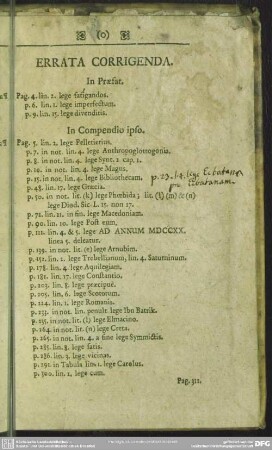 (o)
ERRATA CORRIGENDA.
In Præfat.
Pag. 4. lin. 1. lege fatigandos.
p. 6. lin. 1. lege imperfectum.
p. 9. lin. 15. lege dividuis.
In Compendio ipso.
Pag. 5. lin. 2. lege Pelletierius.
p. 7. in not. lin. 4. lege Anthropoglottogonia.
p. 8. in not. lin. 4. lege Synt. 2 cap. 1.
p. 12. in not. lin. 4. lege Magus.
p. 15. in not. lin. 4. lege Bibliothecam.
p. 48. lin. 17. lege Græcia.
p. 50. in not. lit. (k) lege Phœbidas lit. (l) (m) & (n)
lege Diod. Sic. L. 15. non 17.
p. 71. lin. 21. in fin. lege Macedoniam.
p. 90. lin. 10. lege Post eum.
p. 111. lin. 4. & 5. lege AD ANNUM MDCCXX.
linea 5. deleatur.
p. 139. in not. lit. (e) lege Arnubim.
p. 151. lin. 1. lege Trebellianum, lin. 4. Saturninum.
p. 178. lin. 4. lege Aquilegiam.
p. 181. lin. 17. lege Constantio.
p. 203. lin. 8. lege præcipuè.
p. 205. lin. 6. lege Scotorum.
p. 214. lin. 1. lege Romania.
p. 231. in not. lin. penult. lege Ibn Batrik.
p. 235. in not. lit. (l) lege Elmacino.
p. 264. in not. lit. (n) lege Creta.
p. 265. in not. lin. 4. a fine lege Symmictis.
p. 285. lin. 8. lege satis.
p. 286. lin. 3. lege vicinas.
p. 291. in Tabula lin. 1. lege Carolus.
p. 300. lin. 1. lege cum.
Pag. 311.